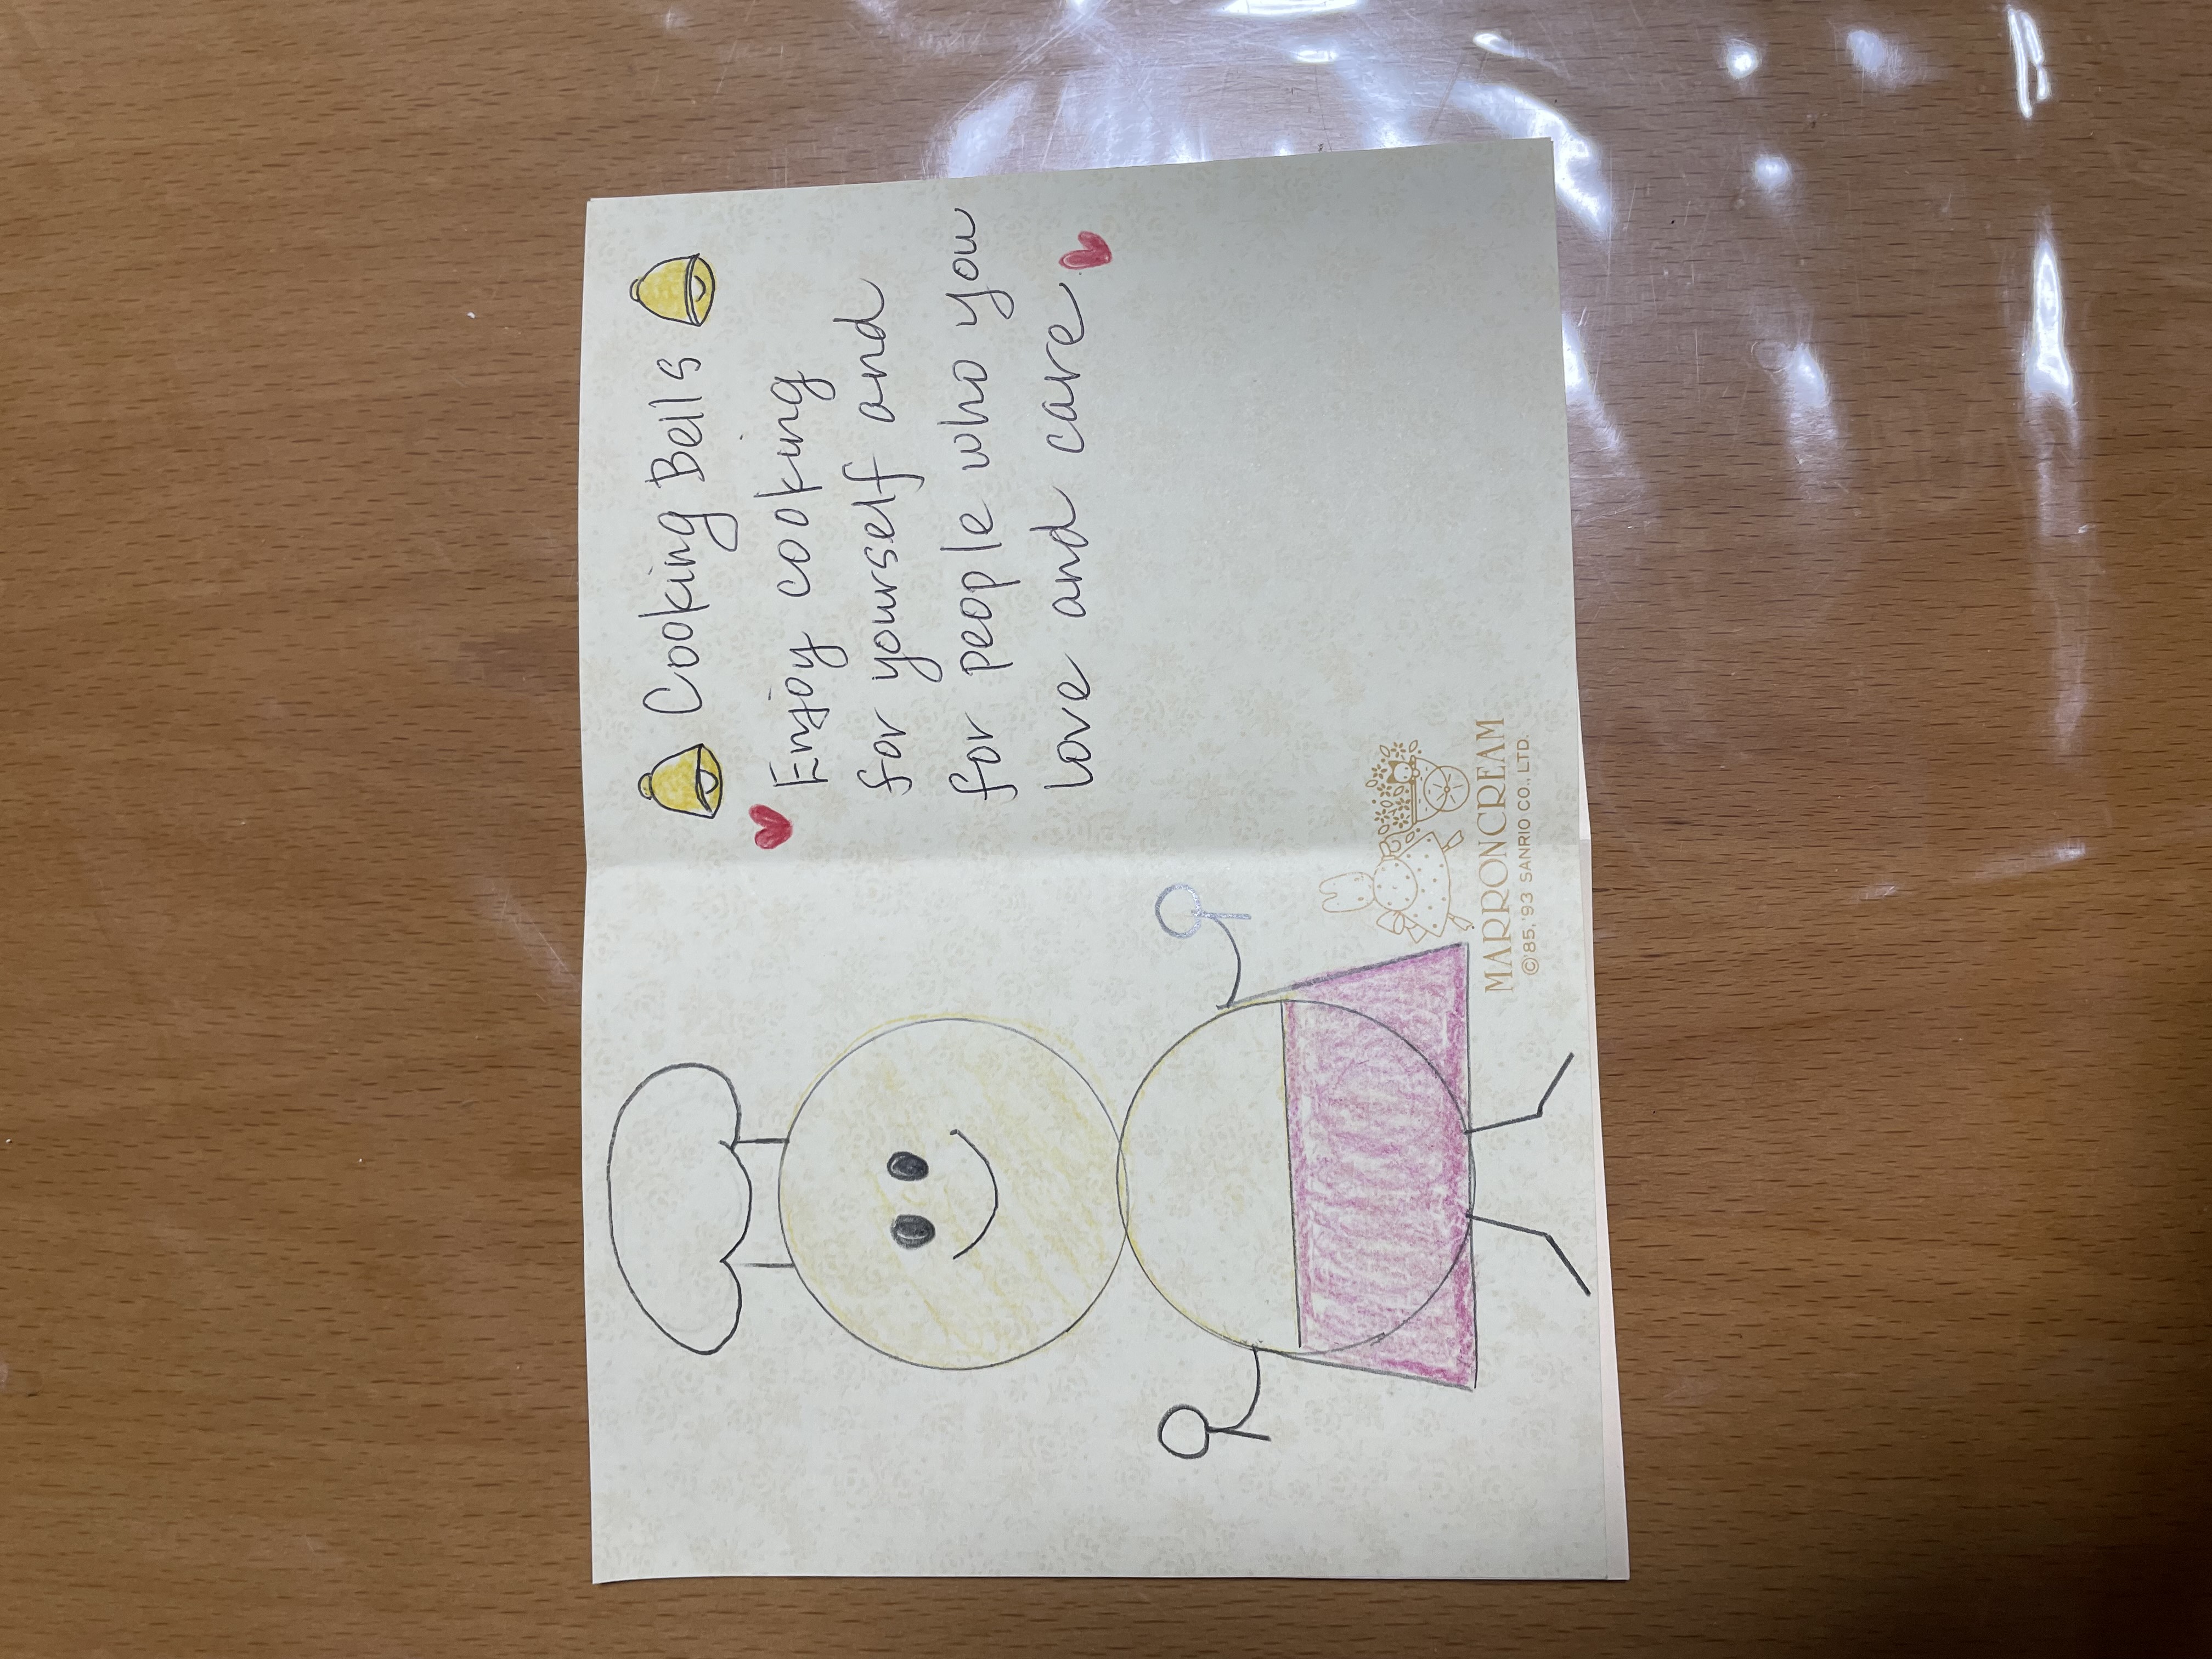 Cooking Bells
Enjoy cooking
for yourself and
for people who you
love and care
MARRONCREAM
©'85, '93 SANRIO CO., LTD.